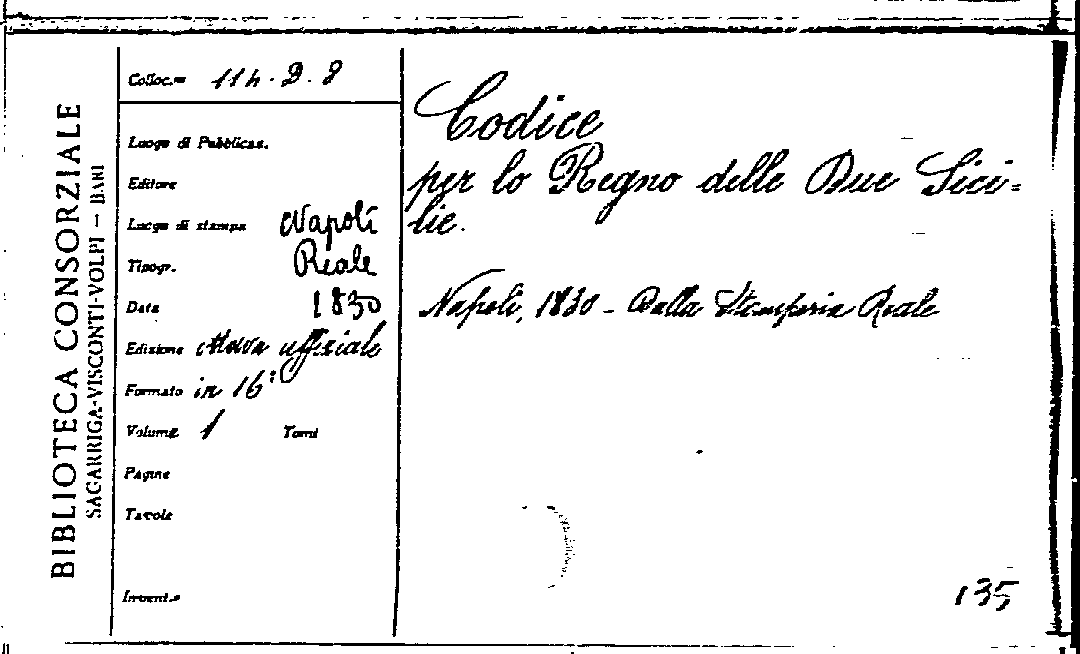 BIBLIOTECA CONSORZIALE
SAGARRIGA-VISCONTI-VOLPI — BARI
Colloc.ne 114. D. 8
Luogo di Pubblicaz.
Editore
Luogo di stampa Napoli
Tipogr. Reale
Data 1830
Edizione Nova uffiziale
Formato in 16°
Volume 1 Tomi
Pagine
Tavole
Invent.e
Codice
per lo Regno delle Due Sici=
lie.
Napoli, 1830 - Dalla Stamperia Reale
135